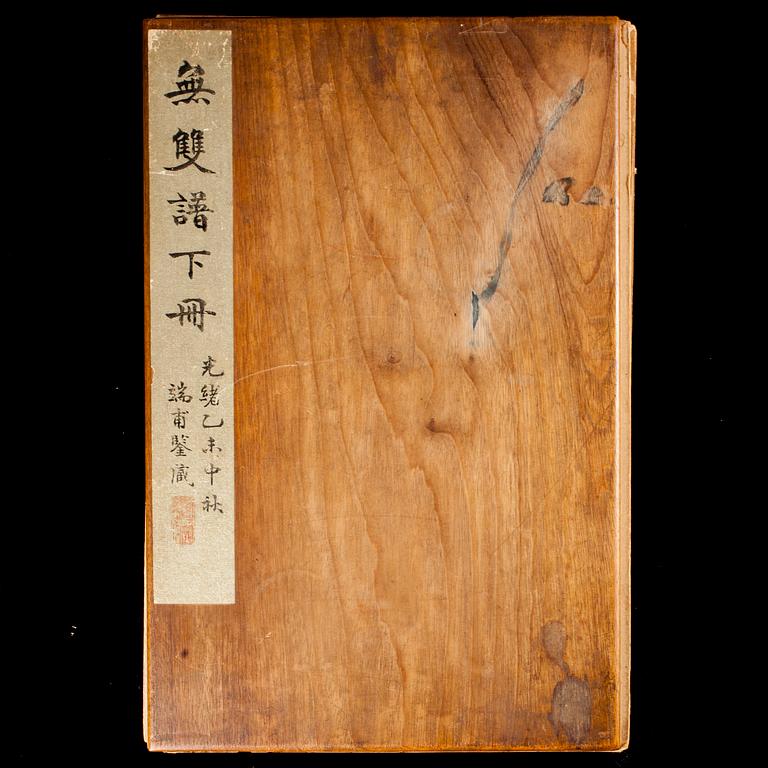 無雙譜下冊
光緒乙未中秋
端甫鑒藏